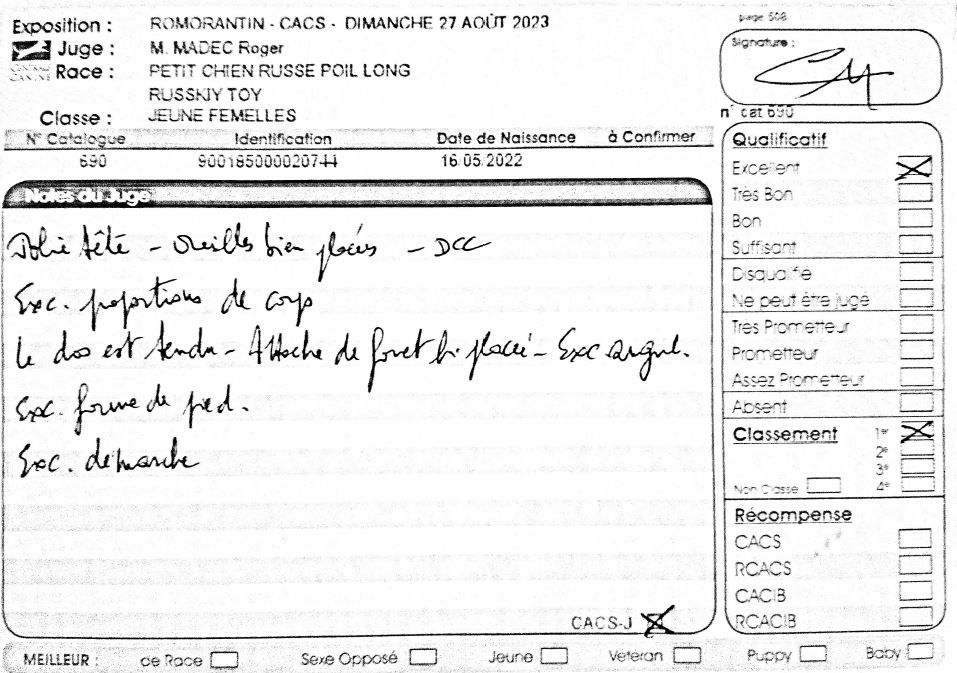 Exposition : ROMORANTIN - CACS - DIMANCHE 27 AOÛT 2023
Juge : M. MADEC Roger
CENTRALE CANINE
Race : PETIT CHIEN RUSSE POIL LONG
RUSSKIY TOY
Classe : JEUNE FEMELLES
N° Catalogue Identification Date de Naissance à Confirmer
690 900185000020744 16/05/2022
Notes du Juge
Jolie tête - oreilles bien placées - DCC
Exc. proportions de corps
Le dos est tendu - Attache de fouet bi placée - Exc angul.
Exc. forme de pied.
Exc. démarche
CACS-J
page 508
Signature :
n° cat 690
Qualificatif
Excellent
Très Bon
Bon
Suffisant
Disqualifié
Ne peut être jugé
Très Prometteur
Prometteur
Assez Prometteur
Absent
Classement 1er
2e
3e
Non Classé 4e
Récompense
CACS
RCACS
CACIB
RCACIB
MEILLEUR : de Race Sexe Opposé Jeune Vétéran Puppy Baby